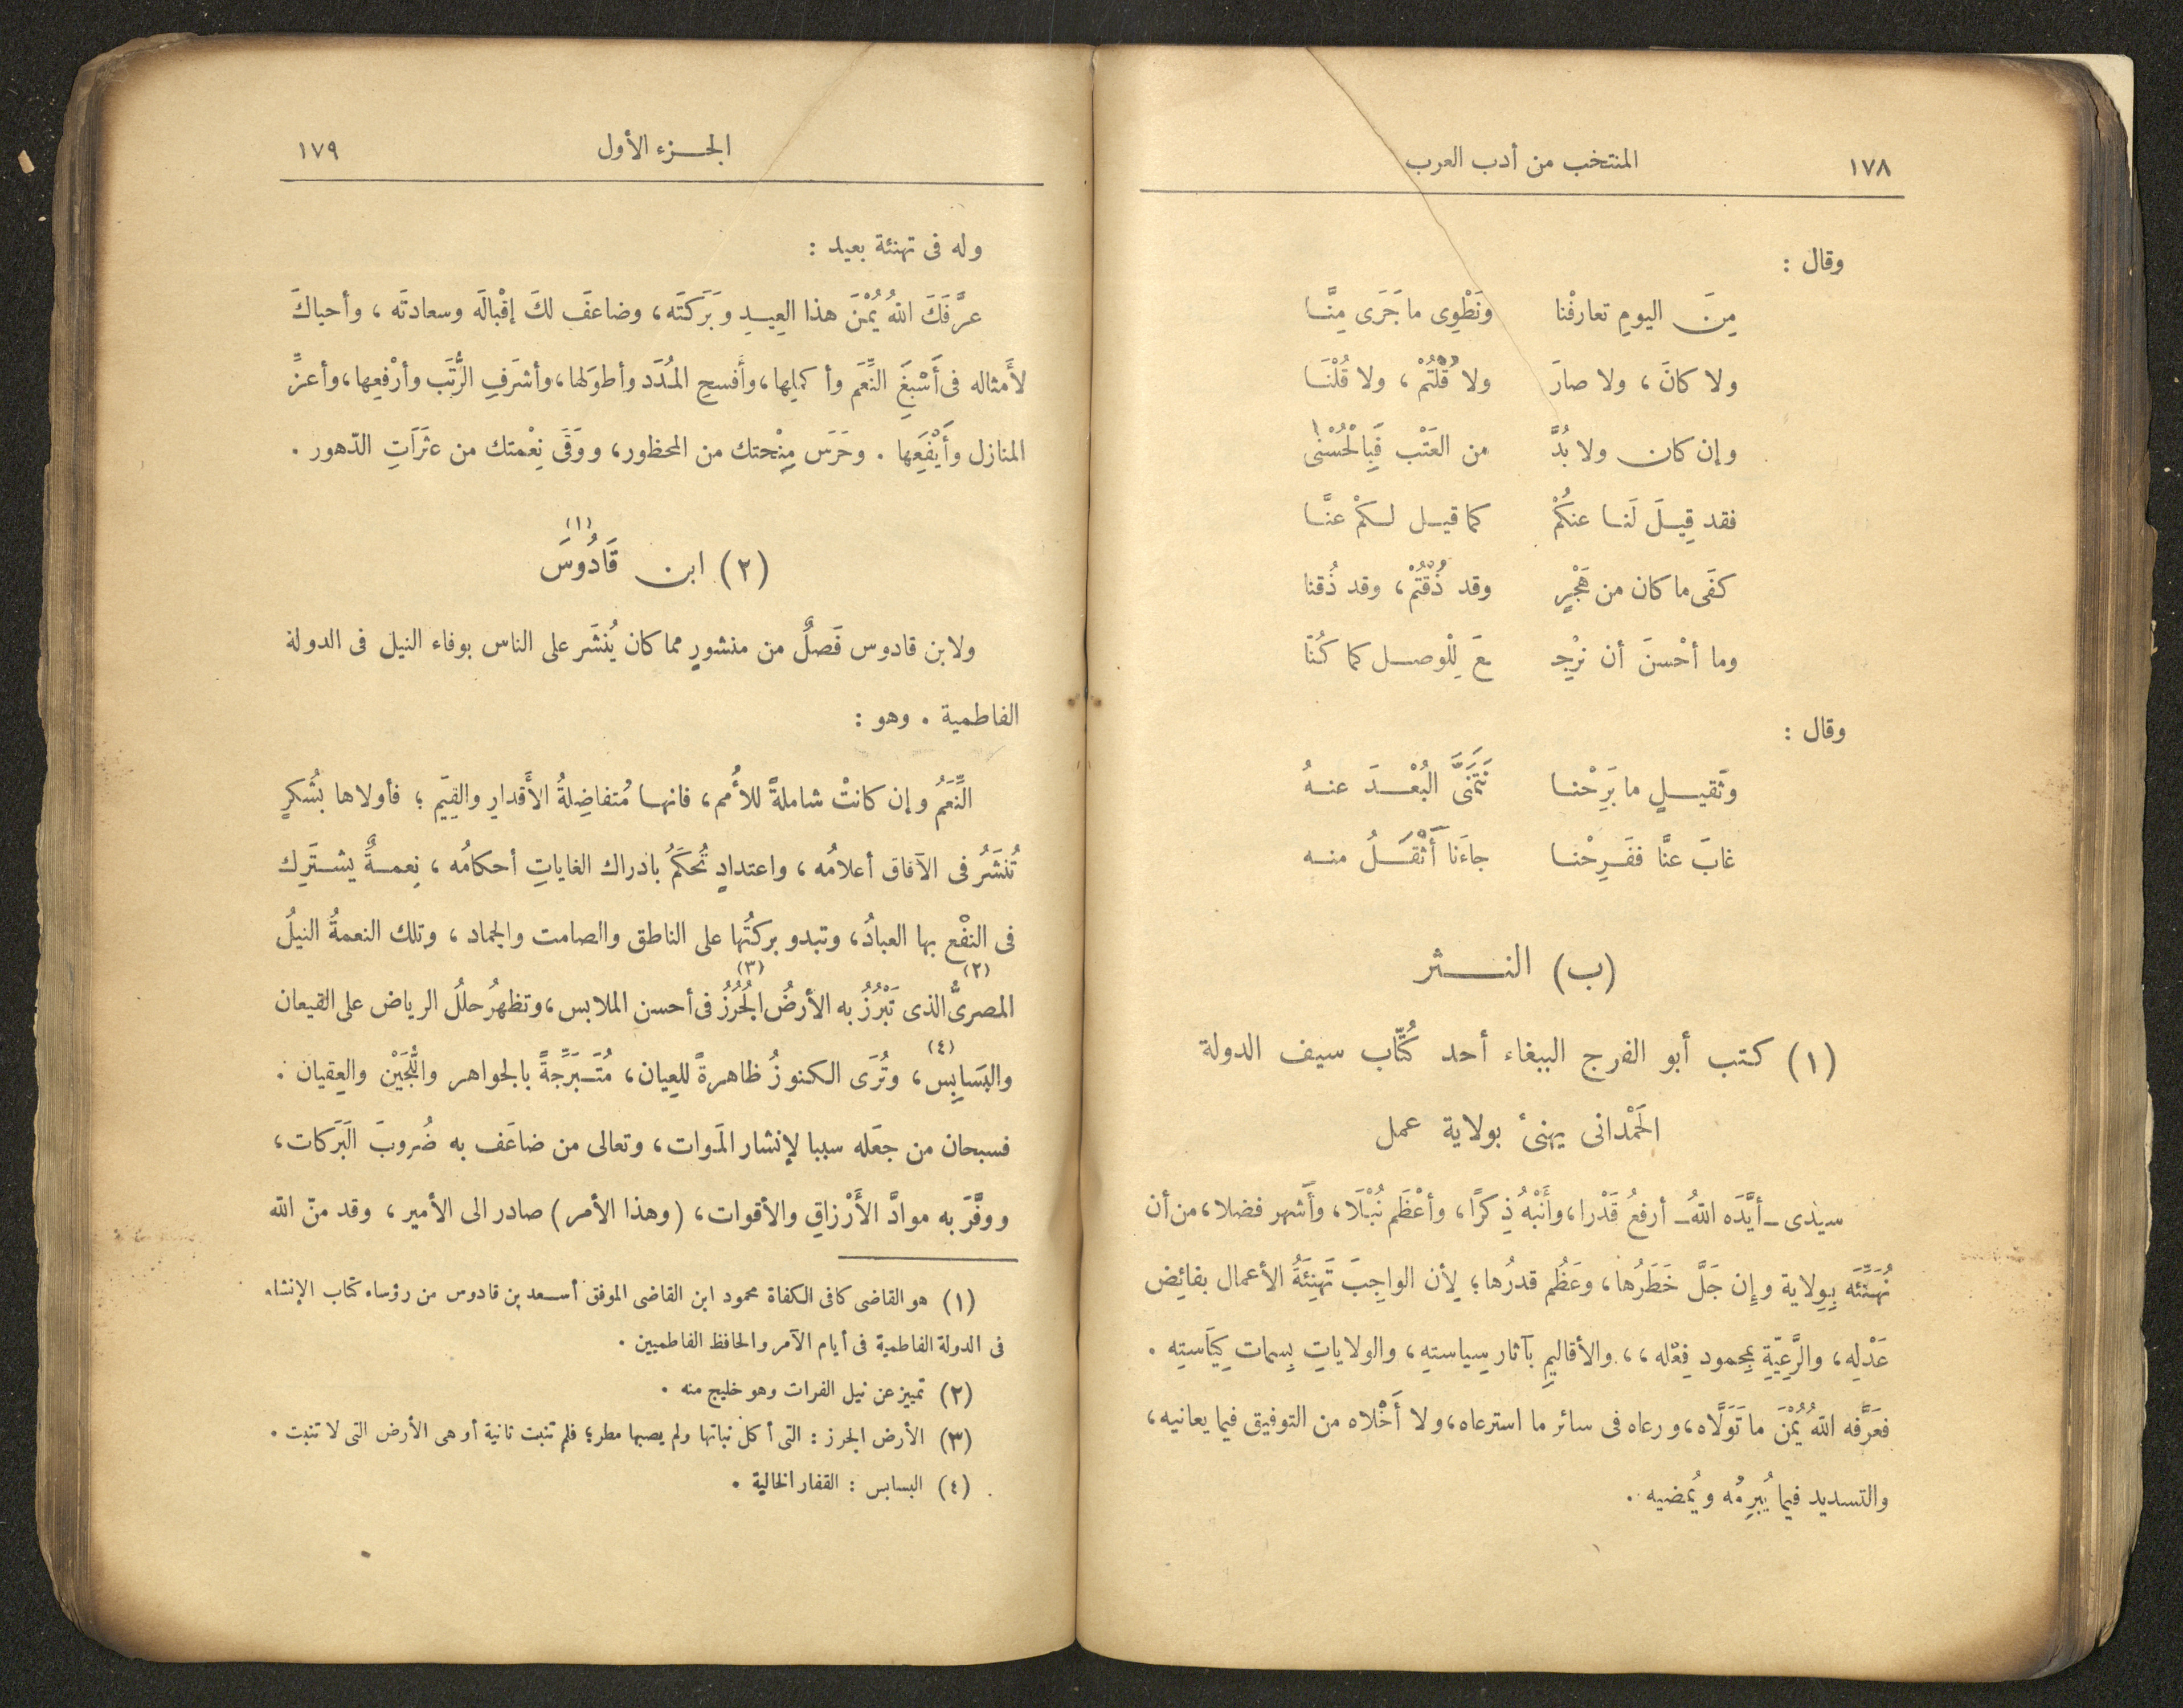 ١٧٨ المنتخب من أدب العرب
وقال :
مِنَ اليومِ تعارفْنا ونَطْوِى ما جَرَى مِنَّا
ولا كانَ ، ولا صارَ ولا قُلْتُمْ ، ولا قُلْنَا
وإن كان ولا بُدَّ من العَتْب فَبِالْحُسْنَى
فقد قِيلَ لَنا عنكُمْ كما قيل لكمْ عنَّا
كفَى ما كان من هَجْرٍ وقد ذُقْتُمْ ، وقد ذُقنا
وما أحْسنَ أن نرْجِـ ـعَ لِلْوصل كما كُنّا
وقال :
وثَقيلٍ ما بَرِحْنا نَتَمَنَّى البُعْدَ عنهُ
غابَ عنَّا ففَرِحْنا جاءَنا أَثْقَلُ منه
(ب) النثر
(١) كتب أبو الفرج الببغاء أحد كُتّاب سيف الدولة
الحَمْدانى يهنئ بولاية عمل
سيدى ــ أيَّدَه اللهُ ــ أرفعُ قَدْرا ، وأَنْبَهُ ذِكرًا ، وأعْظَم نُبْلًا ، وأَشهر فضلا ، من أن
نُهَنِّئَه بِوِلاية وإِن جَلَّ خَطَرُها ، وعَظُم قدرُها ؛ لِأن الواجِبَ تَهنِئَةُ الأعمال بفائِض
عَدْلِه ، والرَّعِيّةِ بِمحمود فِعْله ، ، والأقاليمِ بآثار سِياستهِ ، والولاياتِ بِسمات كِيَاستِه .
فعَرَّفه اللهُ يُمْنَ ما تَوَلَّاه ، ورعاه فى سائر ما استرعاه ، ولا أَخْلاه من التوفيق فيما يعانيه ،
والتسديد فيما يُبرِمُه ويُمضيه .
الجزء الأول ١٧٩
وله فى تهنئة بعيد :
عرَّفَكَ اللهُ يُمْنَ هذا العِيدِ وبَرَكتَه ، وضاعفَ لكَ إقْبالَه وسعادتَه ، وأحياكَ
لأَمثاله فى أَسْبَغِ النِّعَم وأكملِها ، وأَفْسحِ المُدَد وأطوَلها ، وأشرَفِ الرُّتَب وأرْفعِها ، وأعزِّ
المنازل وأَيْفَعِها . وحَرَس مِنْحتك من المحظور ، ووَقَى نِعْمتك من عثَرَاتِ الدّهور .
(٢) ابن قَادُوسَ (١)
ولابن قادوس فَصلٌ من منشورٍ مما كان يُنشَر على الناس بوفاء النيل فى الدولة
الفاطمية . وهو :
النِّعَمُ وإن كانتْ شاملةً للأُمم ، فانها مُتفاضِلةُ الأَقدارِ والقِيَم ؛ فأولاها بشُكرٍ
تُنشَرُ فى الآفاق أعلامُه ، واعتدادٍ تُحكَمُ بادراك الغاياتِ أحكامُه ، نِعمةٌ يشترِك
فى النفْع بها العبادُ ، وتبدو بركتُها على الناطق والصامت والجماد ، وتلك النعمةُ النيلُ
المصرىُّ (٢) الذى تَبْرُزُ به الأرضُ الجُرُزُ (٣) فى أحسن الملابس ، وتظهرُ حللُ الرياض على القيعان
والبَسَابِس (٤) ، وتُرَى الكنوزُ ظاهرةً للعِيان ، مُتَبَرِّجةً بالجواهر واللُّجَيْن والعِقيان .
فسبحان من جعَله سببا لإنشار المَوات ، وتعالى من ضاعَف به ضُروبَ البَرَكات ،
ووفَّرَ به موادَّ الأَرْزاقِ والأقوات ، (وهذا الأمر) صادر الى الأمير ، وقد منّ الله
(١) هو القاضى كافى الكفاة محمود ابن القاضى الموفق أسعد بن قادوس من رؤساء كتاب الإنشاء
فى الدولة الفاطمية فى أيام الآمر والحافظ الفاطميين .
(٢) تمييز عن نيل الفرات وهو خليج منه .
(٣) الأرض الجرز : التى أكل نباتها ولم يصبها مطر ؛ فلم تنبت ثانية أو هى الأرض التى لا تنبت .
(٤) البسابس : القفار الخالية .